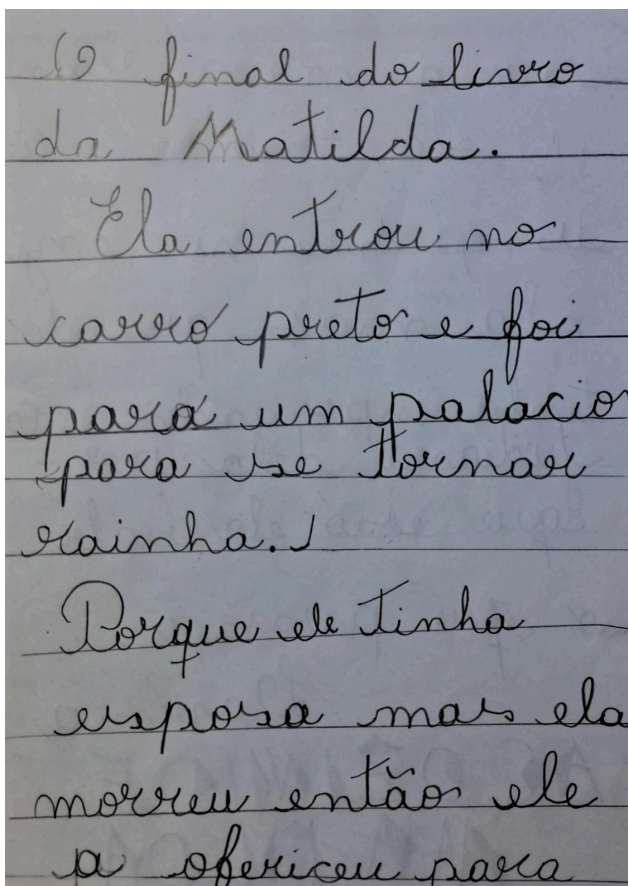 O final do livro
da Matilda.
Ela entrou no
carro preto e foi
para um palacio
para se tornar
rainha.
Porque ele tinha
esposa mas ela
morreu então ele
a ofericeu para